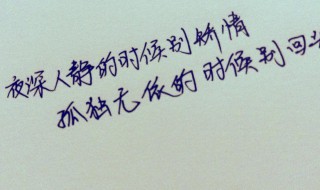 夜深人静的时候别矫情
孤独无依的时候别回